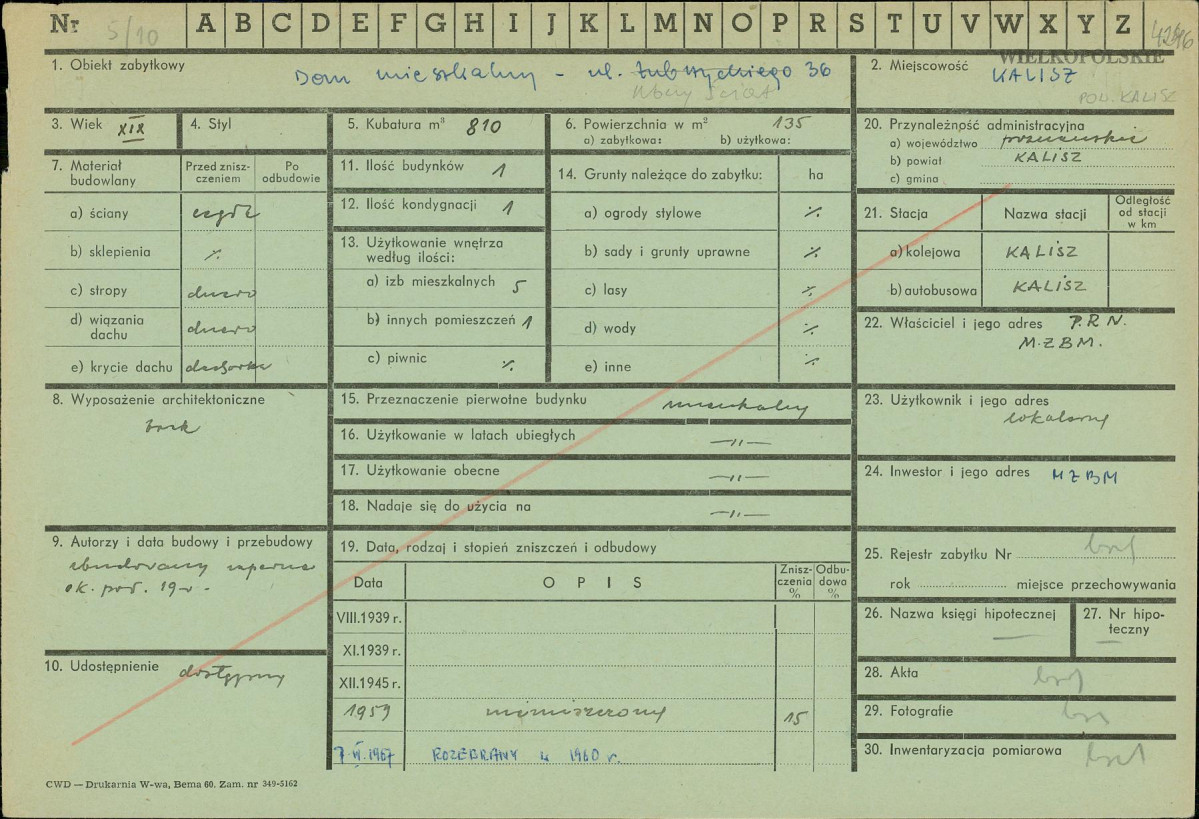 Nr 5/10 A B C D E F G H I J K L M N O P R S T U V W X Y Z
WIELKOPOLSKIE
1. Obiekt zabytkowy
Dom mieszkalny – ul. 36
2. Miejscowość
KALISZ
POW. KALISZ
3. Wiek XIX
4. Styl
5. Kubatura m³ 810
6. Powierzchnia w m² 135
a) zabytkowa: b) użytkowa:
20. Przynależność administracyjna
a) województwo poznańskie
b) powiat KALISZ
c) gmina
7. Materiał budowlany
Przed zniszczeniem
Po odbudowie
a) ściany cegła
b) sklepienia ·/.
c) stropy drewno
d) wiązania dachu drewno
e) krycie dachu dachówka
11. Ilość budynków 1
12. Ilość kondygnacji 1
13. Użytkowanie wnętrza
według ilości:
a) izb mieszkalnych 5
b) innych pomieszczeń 1
c) piwnic ·/.
14. Grunty należące do zabytku: ha
a) ogrody stylowe ·/.
b) sady i grunty uprawne ·/.
c) lasy ·/.
d) wody ·/.
e) inne ·/.
21. Stacja
Nazwa stacji
Odległość
od stacji
w km
a) kolejowa KALISZ
b) autobusowa KALISZ
22. Właściciel i jego adres P.R.N.
M.Z.B.M.
8. Wyposażenie architektoniczne
brak
15. Przeznaczenie pierwotne budynku mieszkalny
16. Użytkowanie w latach ubiegłych —„—
17. Użytkowanie obecne —„—
18. Nadaje się do użycia na —„—
23. Użytkownik i jego adres
lokatorzy
24. Inwestor i jego adres MZBM
9. Autorzy i data budowy i przebudowy
zbudowany zapewne
ok. poł. 19 w.
10. Udostępnienie dostępny
19. Data, rodzaj i stopień zniszczeń i odbudowy
Data
OPIS
Zniszczenia %
Odbudowa %
VIII.1939 r.
XI.1939 r.
XII.1945 r.
1959 15
7 VI 1967 ROZEBRANY w 1960 r.
25. Rejestr zabytku Nr brak
rok miejsce przechowywania
26. Nazwa księgi hipotecznej —
27. Nr hipoteczny —
28. Akta brak
29. Fotografie brak
30. Inwentaryzacja pomiarowa brak
CWD — Drukarnia W-wa, Bema 60. Zam. nr 349-5162